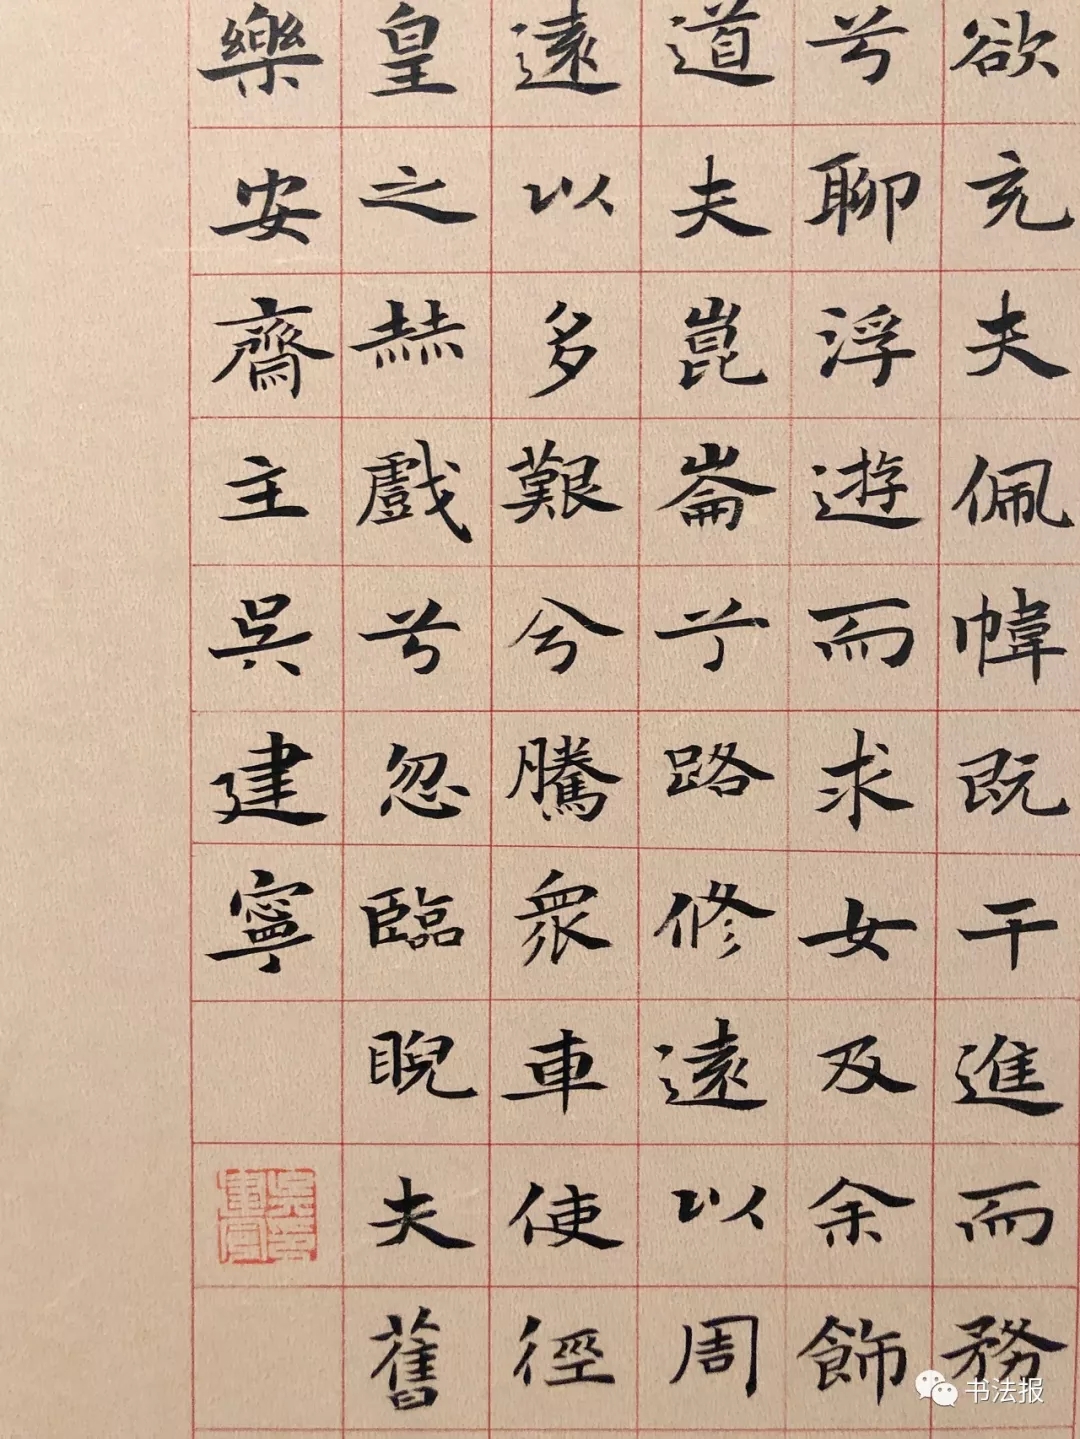 欲充夫佩幃既干進而務
兮聊浮遊而求女及余飾
道夫崑崙兮路修遠以周
遠以多艱兮騰衆車使徑
皇之赫戲兮忽臨睨夫舊
樂安齋主吳建寧
书法报